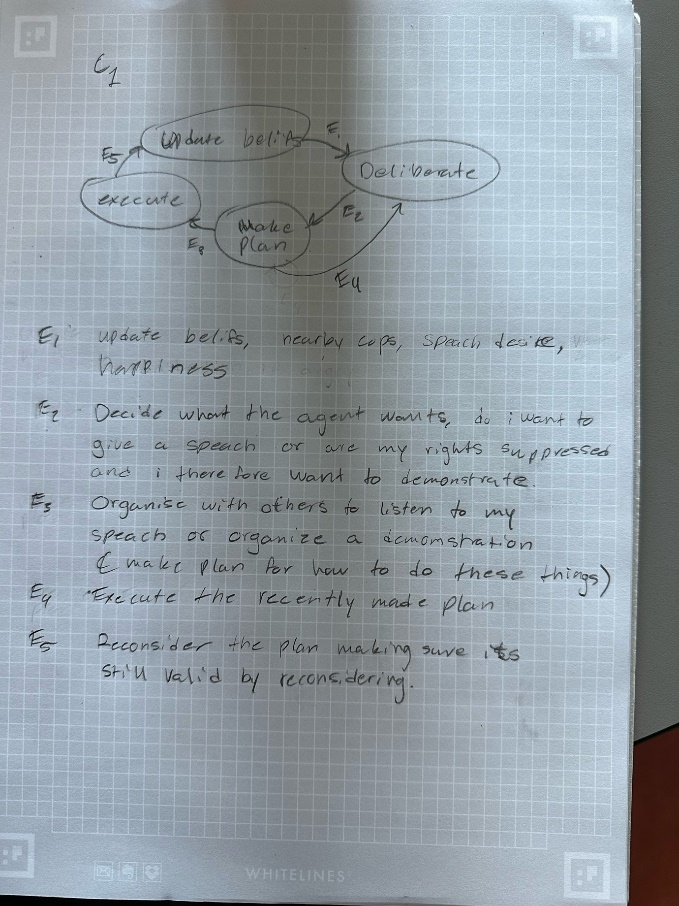 C1
Update belifs
E1
Deliberate
E5
execute
E2
Make
plan
E4
E1 update belifs, nearby cops, speach desire,
happiness
E2 Decide what the agent wants, do i want to
give a speach or are my rights suppressed
and i therefore want to demonstrate.
E3 Organise with others to listen to my
speach or organize a demomstration
(make plan for how to do these things)
E4 Execute the recently made plan
E5 Reconsider the plan making sure its
still valid by reconsidering.
WHITELINES